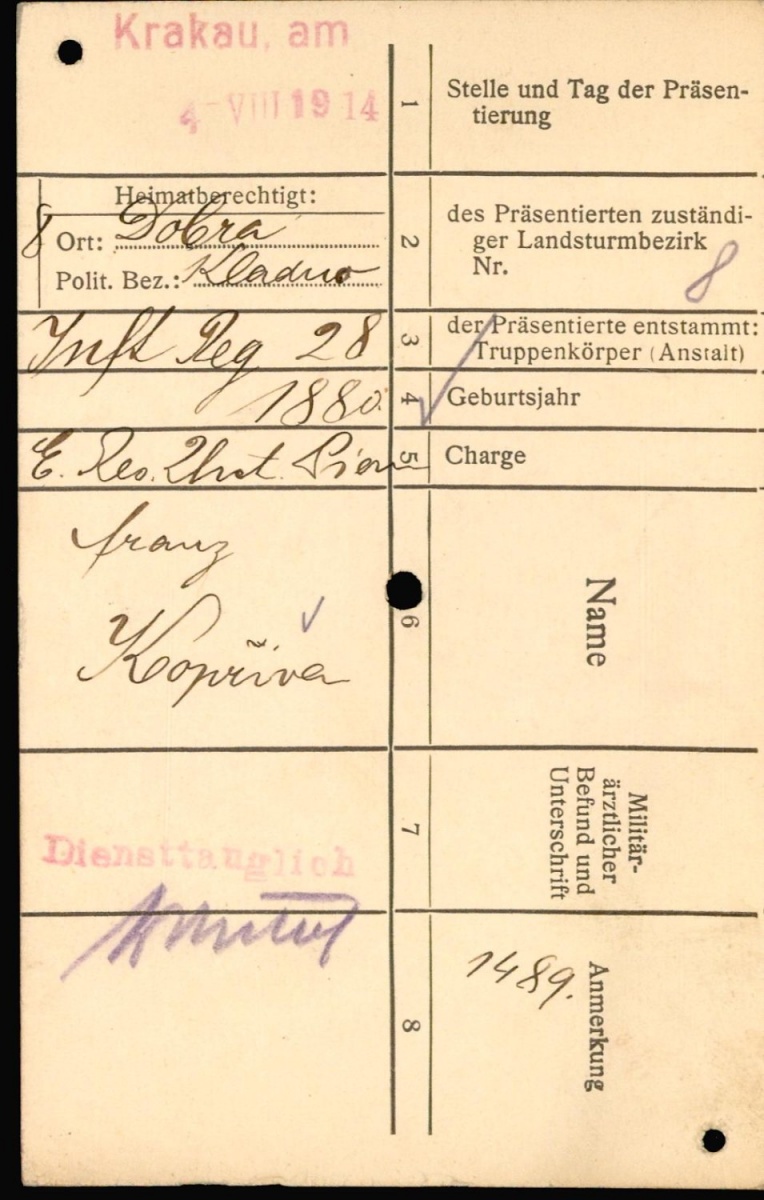 Krakau, am
4-VIII 1914
1
Stelle und Tag der Präsen-
tierung
Heimatberechtigt:
8
Ort: Dobra
Polit. Bez.: Kladno
2
des Präsentierten zuständi-
ger Landsturmbezirk
Nr.
8
Inft Reg 28
3
der Präsentierte entstammt:
Truppenkörper (Anstalt)
1880.
4
Geburtsjahr
E. Res.
5
Charge
franz
Kopřiva
6
Name
Diensttauglich
7
Militär-
ärztlicher
Befund und
Unterschrift
8
Anmerkung
1489.